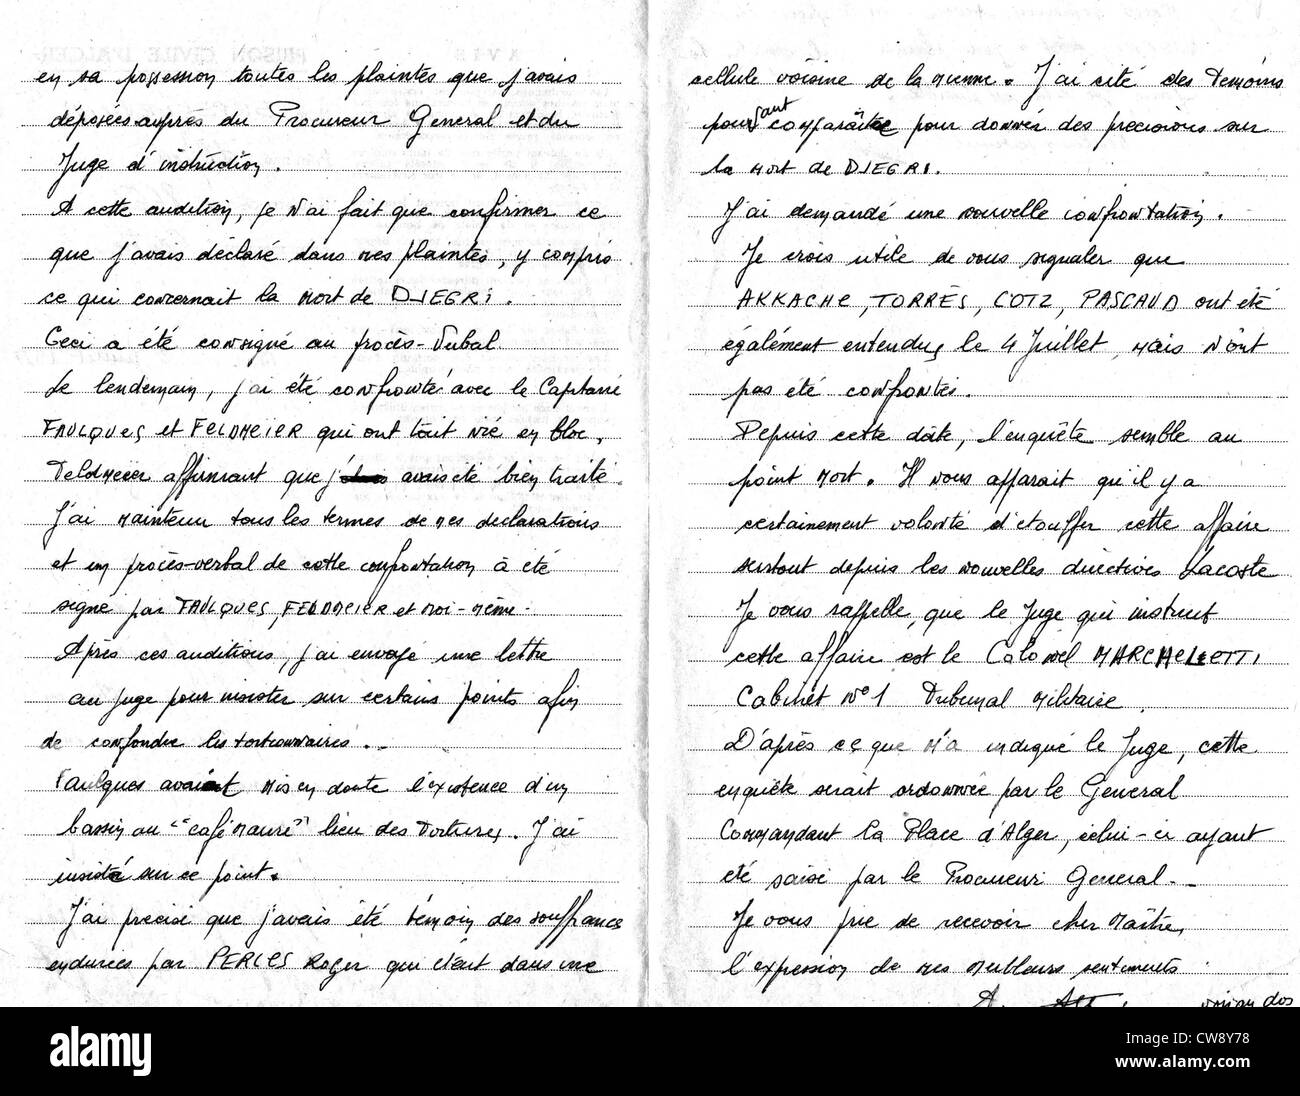 en sa possession toutes les plaintes que j'avais
déposées auprès du Procureur General et du
Juge d'instruction.
A cette audition, je n'ai fait que confirmer ce
que j'avais déclaré dans mes plaintes, y compris
ce qui concernait la mort de DJEGRI.
Ceci a été consigné au procès-Verbal
Le lendemain, j'ai été confronté avec le Capitaine
FAULQUES et FELDMEIER qui ont tout nié en bloc,
Feldmeier affirmant que j' avais été bien traité.
J'ai maintenu tous les termes de mes déclarations
et un procès-verbal de cette confrontation à été
signé par FAULQUES, FELDMEIER et moi-même.
Après ces auditions, j'ai envoyé une lettre
au juge pour insister sur certains points afin
de confondre les tortionnaires.-
Faulques avait mis en doute l'existence d'un
bassin au "café Maure" lieu des Tortures. J'ai
insisté sur ce point.
J'ai précisé que j'avais été témoin des souffrances
endurées par PERLES Roger qui était dans une
cellule voisine de la mienne. J'ai cité des Témoins
pouvant comparaître pour donner des precisions sur
la mort de DJEGRI.
J'ai demandé une nouvelle confrontation.
Je crois utile de vous signaler que
AKKACHE, TORRÈS, COTZ, PASCAUD ont été
également entendus le 4 Juillet, mais n'ont
pas été confrontés.
Depuis cette date, l'enquête semble au
point mort. Il nous apparait qu'il y a
certainement volonté d'étouffer cette affaire
surtout depuis les nouvelles directives Lacoste
Je vous rappelle, que le Juge qui instruit
cette affaire est le Colonel MARCHELOTTI,
Cabinet N° 1 Tribunal Militaire.
D'après ce que m'a indiqué le Juge, cette
enquête serait ordonnée par le General
Commandant la Place d'Alger, celui-ci ayant
été saisi par le Procureur General.-
Je vous prie de recevoir cher Maître,
l'expression de mes meilleurs sentiments
voir au dos
alamy
Image ID: CW8Y78
www.alamy.com